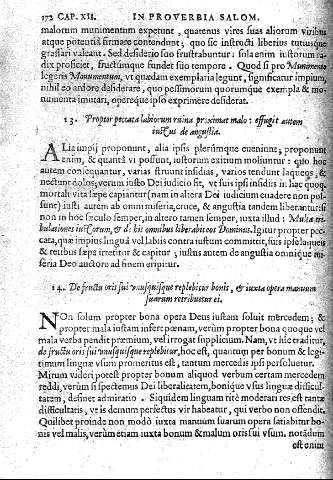 172 CAP. XII. IN PROVERBIA SALOM.
malorum munimentum expetunt, quatenus vires suas aliorum viribus
atque potentiâ firmare contendunt, quo sic instructi liberius tutiusque
grassari valeant. Sed desiderio suo frustrabuntur: sola enim iustorum ra-
dix proficiet, fructúmque fundet suo tempore. Quod si pro Munimento
legeris Monumentum, vt quædam exemplaria legunt, significatur impium
nihil eo ardore desiderare, quo pessimorum quorumque exempla & mo-
numenta imitari, opereque ipso exprimere desiderat.
13. Propter peccata labiorum ruina proximat malo: effugit autem
iustus de angustia.
ALia impij proponunt, alia ipsis plerúmque eueniunt; proponunt
enim, & quantâ vi possunt, iustorum exitium moliuntur: quo hoc
autem consequantur, varias struunt insidias, varios tendunt laqueos, &
nectunt dolos; verùm iusto Dei iudicio fit, vt suis ipsi insidiis in hac quoq.
mortali vita sæpe capiantur (nam in altera Dei iudicium euadere non pos-
sunt) iusti autem ab omni miseria, cruce, & angustia tandem liberantur: si
non in hoc sæculo semper, in altero tamen semper, iuxta illud: Multæ tri-
bulationes iustorum, & de his omnibus liberabit eos Dominus. Igitur propter pec-
cata, quæ impius linguâ vel labiis contra iustum committit, suis ipse laqueis
& retibus sæpe irretitur & capitur; iustus autem de angustia omnique mi-
seria Deo auctore ad finem eripitur.
14. De fructu oris sui vnusquisque replebitur bonis, & iuxta opera manuum
suarum retribuetur ei.
NOn solum propter bona opera Deus iustam soluit mercedem; &
propter mala iustam infert pœnam, verùm propter bona quoque vel
mala verba pendit præmium, vel irrogat supplicium. Nam, vt hîc traditur,
de fructu oris sui vnusquisque replebitur, hoc est, quantum per bonum & legi-
timum linguæ vsum promeritus est, tantum mercedis ipsi persoluetur.
Mirum videri potest propter bonum aliquod verbum certam mercedem
reddi, verùm si spectemus Dei liberalitatem, bonique vsus linguæ difficul-
tatem, definet admiratio. Siquidem linguam ritè moderari res est tantæ
difficultatis, vt is demum perfectus vir habeatur, qui verbo non offendit.
Quilibet proinde non modò iuxta manuum suarum opera satiabitur bo-
nis vel malis, verùm etiam iuxta bonum & malum oris sui vsum. notãdum
est enim